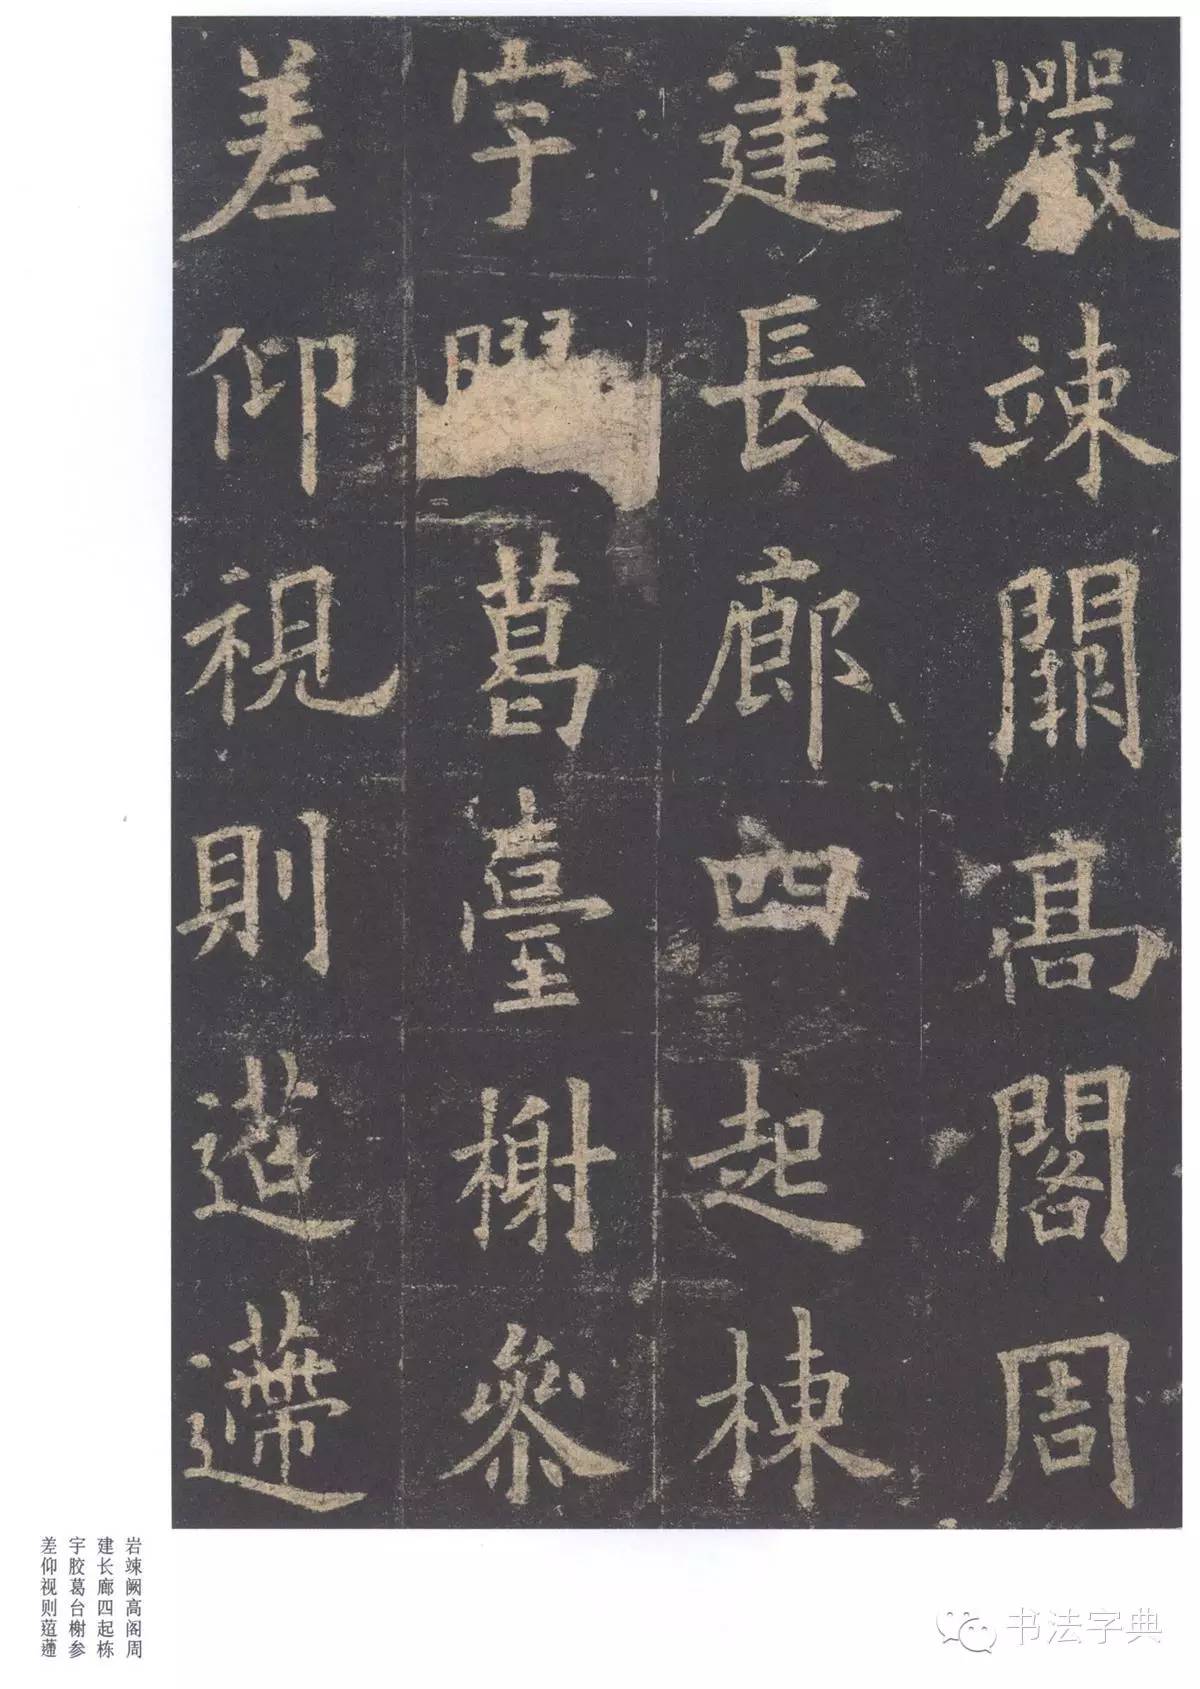 巖竦闕高閣周
建長廊四起棟
宇葛臺榭參
差仰視則迢遰
岩竦阙高阁周
建长廊四起栋
宇胶葛台榭参
差仰视则
书法字典